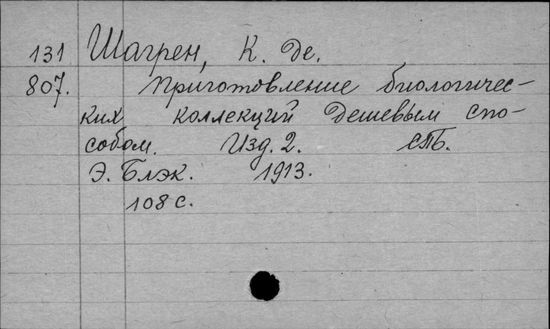 131 Шагрен, К. де.
807. Приготовление биологичес-
ких коллекций дешевым спо-
собом. Изд. 2. СПБ.
Э. Блэк. 1913.
108 с.